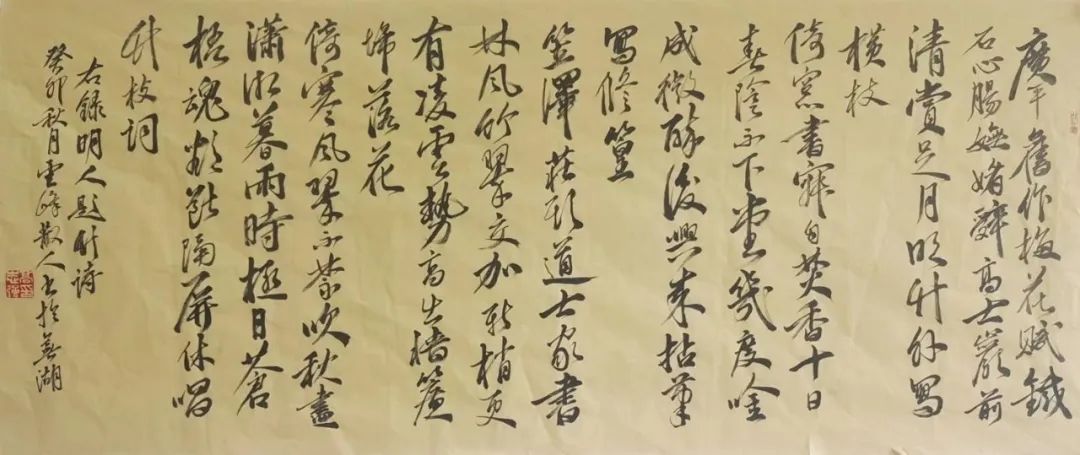 廣平舊作梅花賦鐵
石心腸嫵媚辭高士巖前
清賞足月明竹外寫
橫枝
倚窓書寐自焚香十日
春陰不下堂幾度吟
成微醉後興來拈筆
寫修篁
笠澤莊頭道士家書
林風竹翠交加新梢更
有凌雲勢高出檐簷
掃落花
倚寒風翠不禁吹秋盡
瀟湘暮雨時極目蒼
梧魂隔屏休唱
竹枝詞
右録明人題竹詩
癸卯秋月雲峰散人書於蕪湖